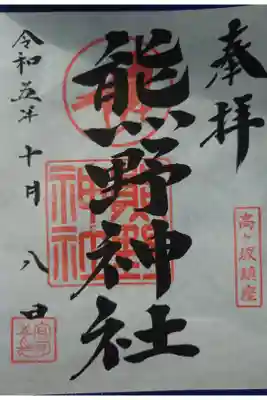 奉拝
高ヶ坂鎮座
熊野神社
熊野神社
令和五年十月八日